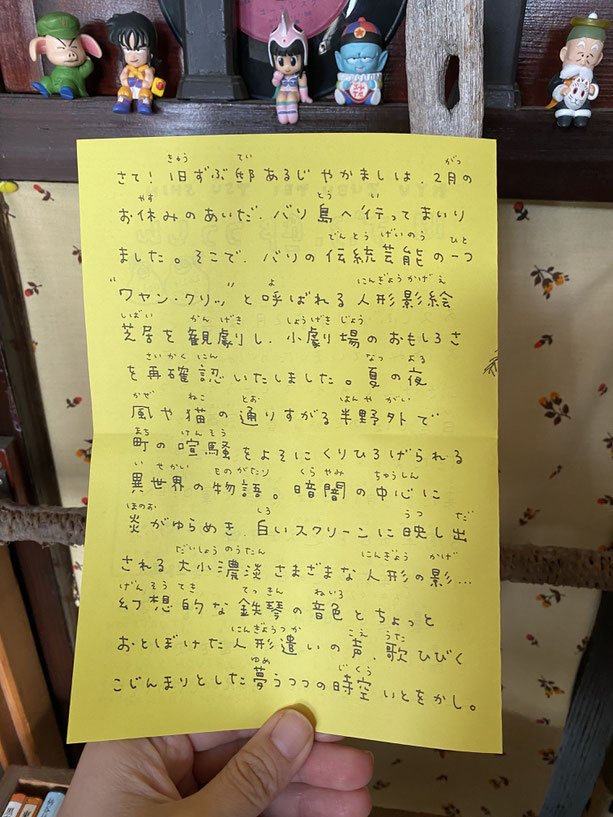 さて！旧ずぶ邸あるじやかましは、2月の
お休みのあいだ、バリ島へ行ってまいり
ました。そこで、バリの伝統芸能の一つ
"ワヤン・クリッ"と呼ばれる人形影絵
芝居を観劇し、小劇場のおもしろさ
を再確認いたしました。夏の夜
風や猫の通りすがる半野外で
町の喧騒をよそにくりひろげられる
異世界の物語。暗闇の中心に
炎がゆらめき、白いスクリーンに映し出
される大小濃淡さまざまな人形の影…
幻想的な鉄琴の音色とちょっと
おとぼけた人形遣いの声、歌ひびく
こじんまりとした夢うつつの時空いとをかし。